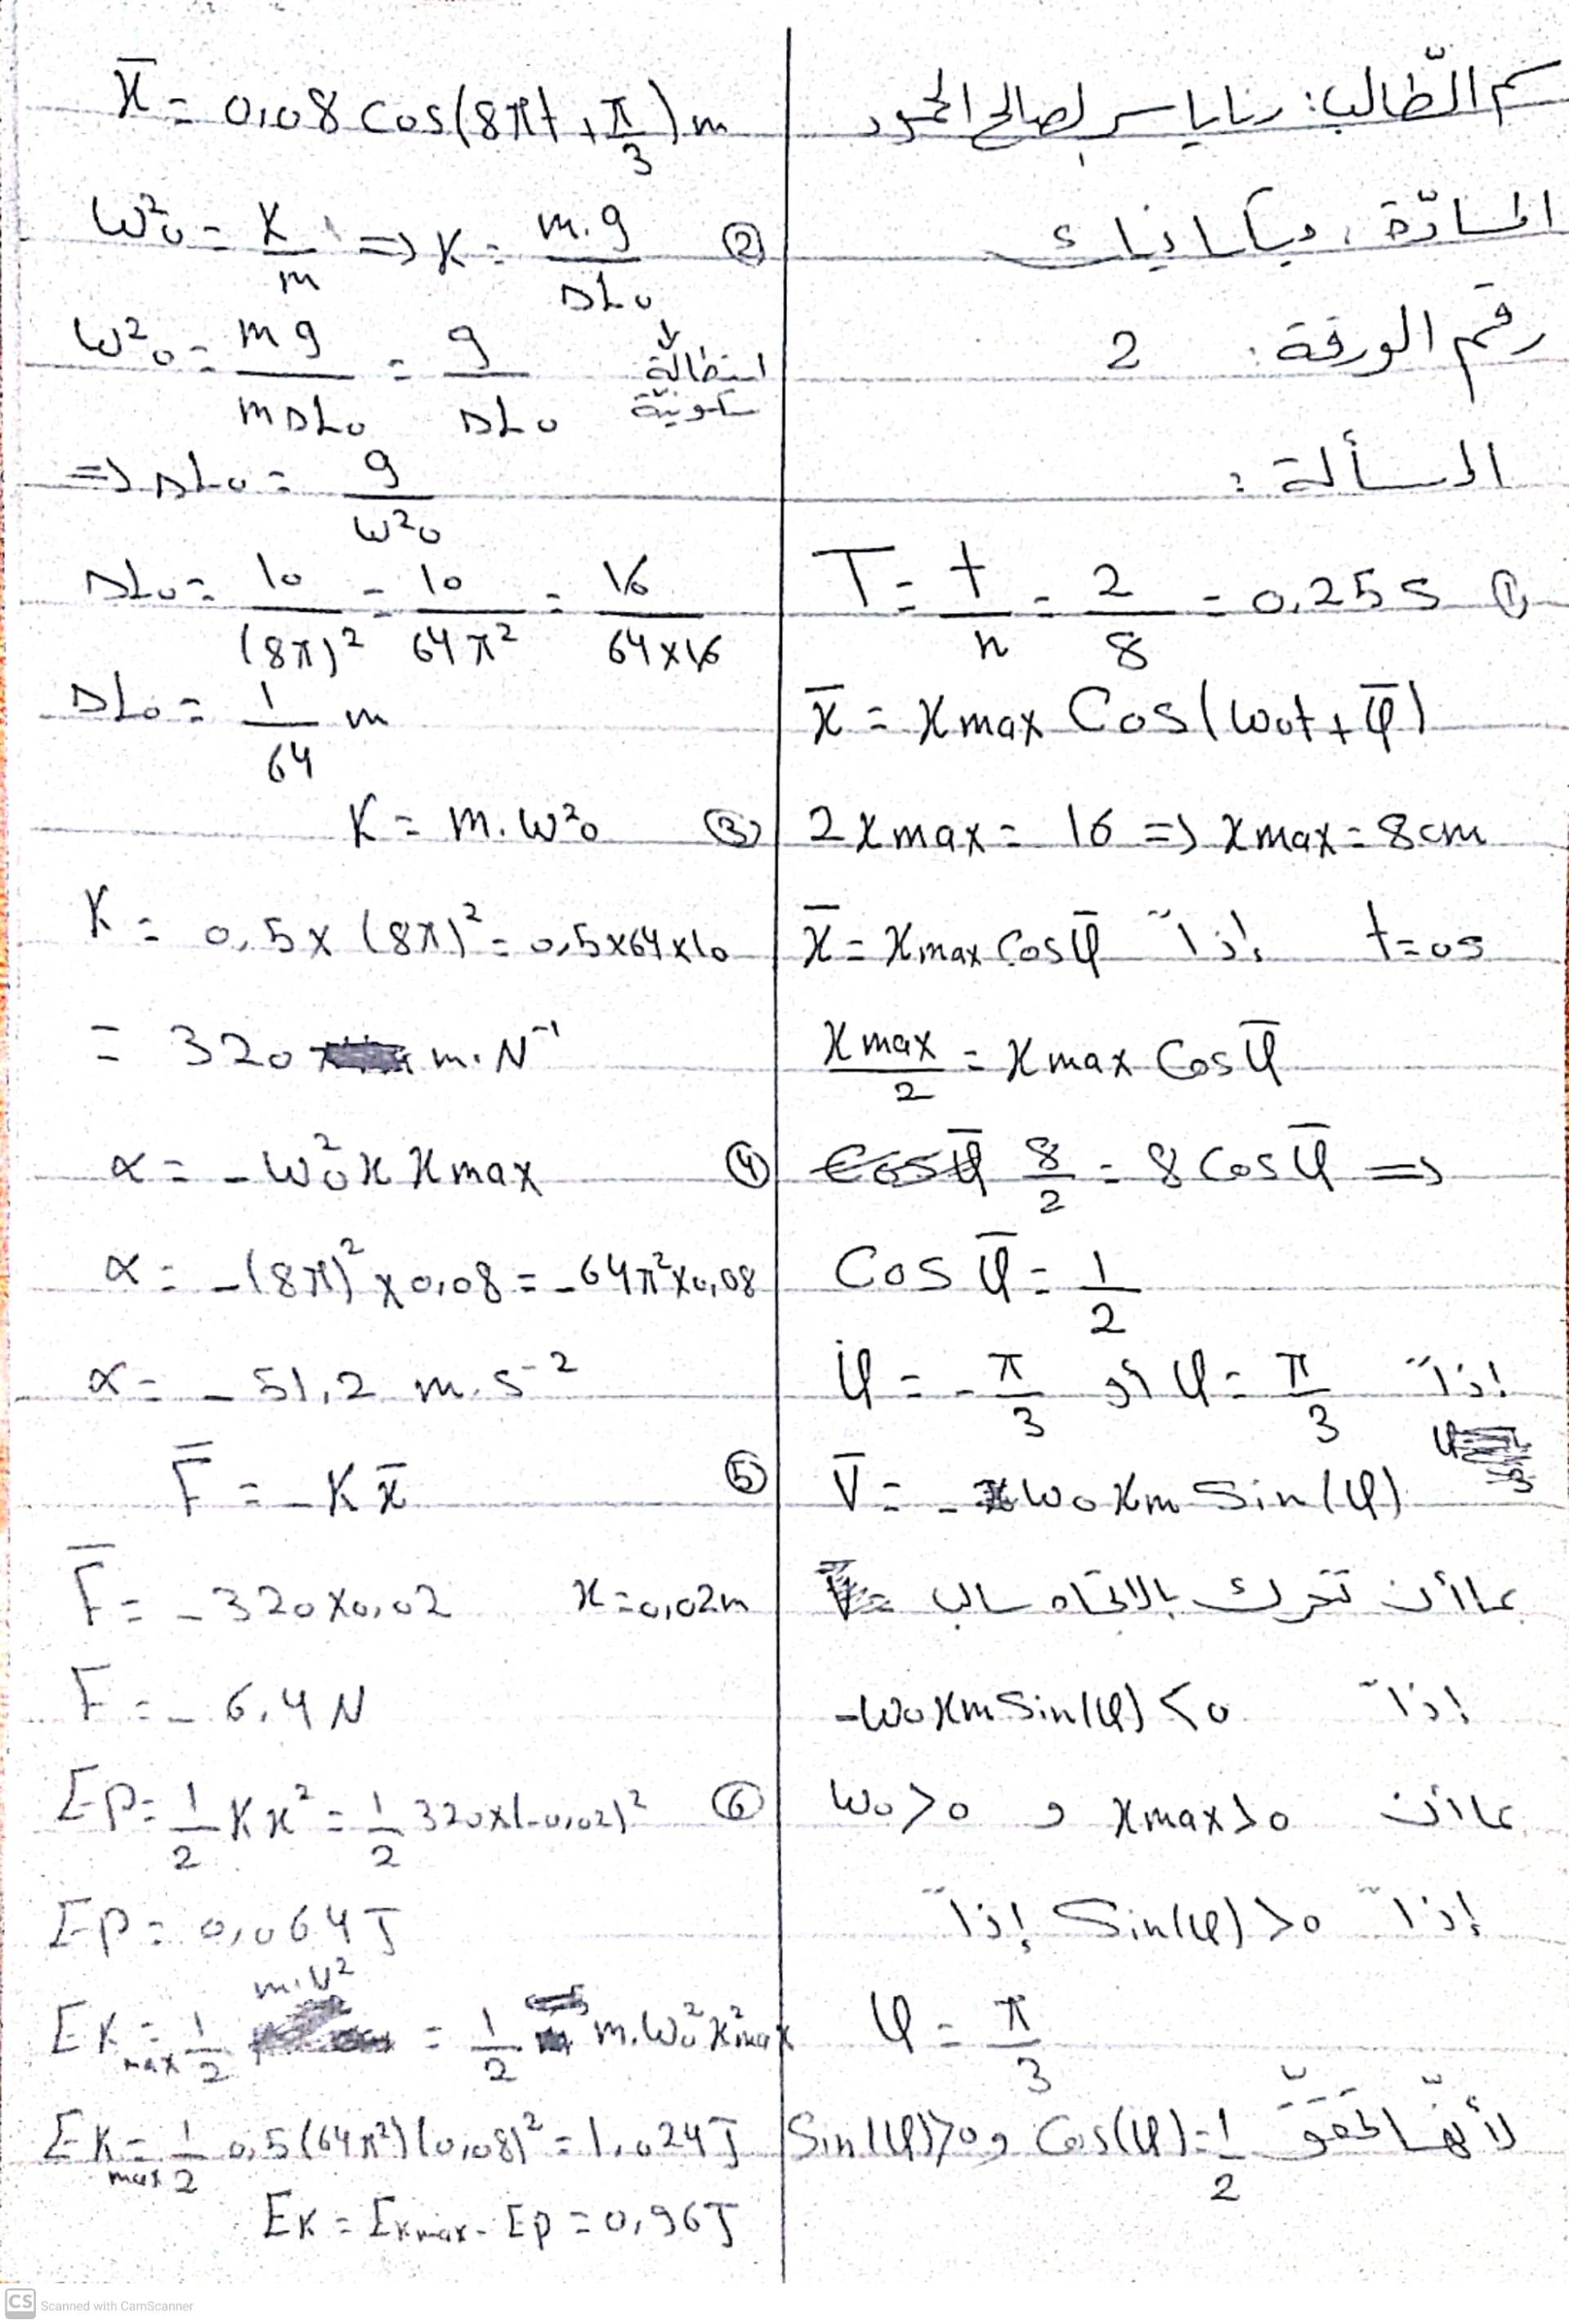 سم الطّالب: رنا ياسر لصالح الحمود
المادّة: ميكانيك
رقم الورقة: 2
المسألة:
① T = t/n = 2/8 = 0,25 s
x̄ = Xmax Cos(ω₀t + φ̄)
2Xmax = 16 => Xmax = 8cm
t=0s إذاً x̄ = Xmax Cosφ̄
Xmax/2 = Xmax Cosφ̄
8/2 = 8 Cosφ̄ =>
Cosφ̄ = 1/2
إذاً φ = π/3 أو φ = -π/3
V̄ = -ω₀Xm Sin(φ)
بما أن تتحرك بالاتجاه سالب
إذاً -ω₀Xm Sin(φ) < 0
بما أن Xmax > 0 و ω₀ > 0
إذاً Sin(φ) > 0 إذاً
φ = π/3
لأنها تحقق Cos(φ) = 1/2 و Sin(φ) > 0
x̄ = 0,08 Cos(8πt + π/3) m
② ω²₀ = K/m => K = m.g/ΔL₀
ω²₀ = mg/mΔL₀ = g/ΔL₀ استطالة
سكونية
=> ΔL₀ = g/ω²₀
ΔL₀ = 10/(8π)² = 10/64π² = 10/64×10
ΔL₀ = 1/64 m
③ K = m.ω²₀
K = 0,5 × (8π)² = 0,5×64×10
= 320 m.N⁻¹
④ α = -ω²₀ x Xmax
α = -(8π)² × 0,08 = -64π²×0,08
α = -51,2 m.s⁻²
⑤ F̄ = -Kx̄
F̄ = -320×0,02 x=0,02m
F = -6,4 N
⑥ Ep = 1/2 Kx² = 1/2 320×(-0,02)²
Ep = 0,064 J
Ek max = 1/2 m.V² = 1/2 m.ω²₀ X²max
Ek max = 1/2 0,5(64π²)(0,08)² = 1,024 J
Ek = Ekmax - Ep = 0,96 J
CS Scanned with CamScanner